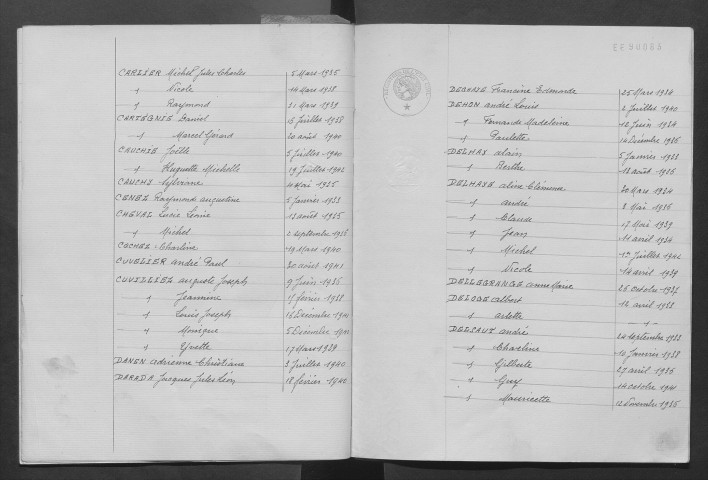 CARLIER Michel Jules Charles 5 Mars 1935
" Nicole 14 Mars 1938
" Raymond 21 Mars 1939
CARTEGNIE Daniel 15 Juillet 1938
" Marcel Gérard 20 août 1940
CAUCHIE Joëlle 5 Juillet 1940
" Huguette Michelle 19 Juillet 1942
CAUCHY Sylviane 10 Mai 1935
CENEZ Raymond augustine 5 Janvier 1933
CHEVAL Lucie Léonie 13 août 1935
" Michel 2 Septembre 1936
COCHEZ Charline 19 Mars 1940
CUVELIER andré Paul 20 août 1941
CUVILLIEZ auguste Joseph 9 Juin 1936
" Jeannine février 1938
" Louis Joseph 16 Décembre
" Monique 5 Décembre
" Yvette 17 Mars 1939
DANEN adrienne Christiane 3 Juillet 1940
DARADA Jacques Jules Léon 18 février 1942
EE90065
Francine Edmonde 25 Mars 1934
DEHON andré Louis 2 Juillet 1940
" Fernande Madeleine 12 Juin 1934
" Paulette 14 Décembre 1936
DELHAY alain 5 Janvier 1938
" Berthe 13 août 1936
DELHAYE aline Clémence 30 Mars 1934
" andré 8 Mai 1936
" Claude 17 Mai 1939
" Jean 11 avril 1934
" Michel Juillet
" Nicole 14 avril 1939
DELLEGRANGE anne Marie 26 octobre 1937
DELOGE albert 12 avril 1938
" arlette "
DELSAUT andré 24 Septembre 1933
" Charline 10 Janvier 1938
" Gilberte 27 avril 1936
" Guy 14 octobre
" Mauricette 12 Novembre 1935